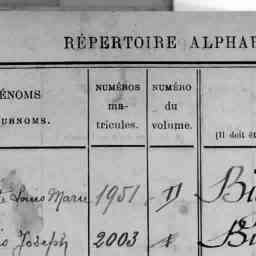 RÉPERTOIRE ALPHA
ÉNOMS
URNOMS.
NUMÉROS
ma-
tricules.
NUMÉRO
du
volume.
(Il doit ê
Louis Marie 1951
Joseph 2003